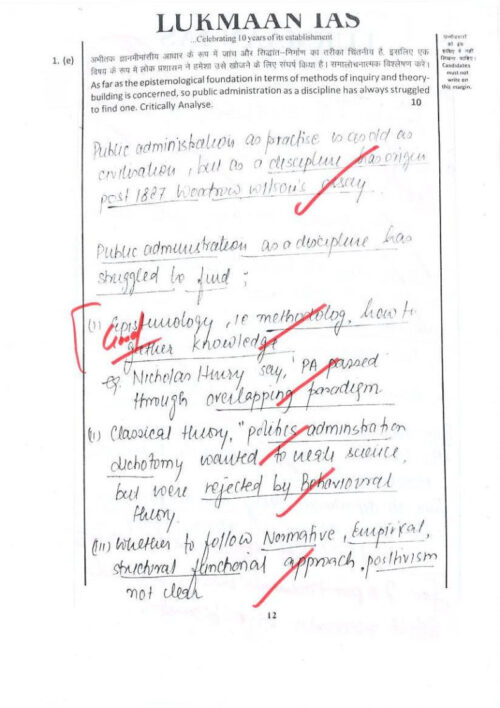 LUKMAAN IAS
...Celebrating 10 years of its establishment
उम्मीदवारों
को इस
हाशिए में नहीं
लिखना चाहिए।
Candidates
must not
write on
this margin.
1. (e) अभीतक ज्ञानमीमांसीय आधार के रूप में जांच और सिद्धांत-निर्माण का तरीका चिंतनीय है, इसलिए एक
विषय के रूप में लोक प्रशासन ने हमेशा उसे खोजने के लिए संघर्ष किया है। समालोचनात्मक विश्लेषण करें।
As far as the epistemological foundation in terms of methods of inquiry and theory-
building is concerned, so public administration as a discipline has always struggled
to find one. Critically Analyse. 10
Public administration as practise is as old as
civilisation, but as a discipline has origin
post 1887 Woodrow Wilson's essay.
Public administration as a discipline has
struggled to find :
(i) Epistemology, ie methodolog, how to
gather knowledge
Good
eg. Nicholas Henry say, "PA passed
through overlapping paradigm
(ii) Classical theory, "politics adminstration
dichotomy wanted to science,
but were rejected by Behavioural
theory.
(iii) Whether to follow Normative, Empirical,
structural functional approach, positivism
not clear
12